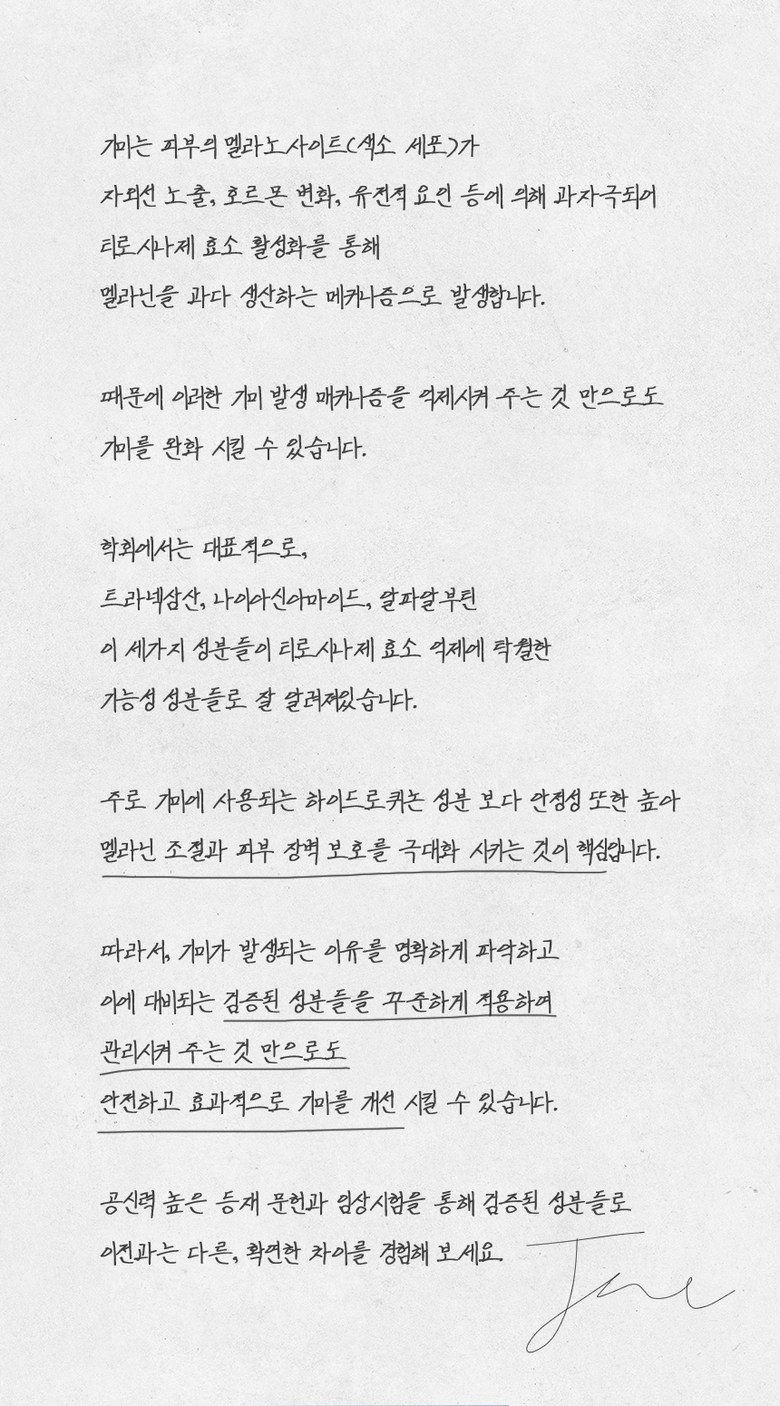 기미는 피부의 멜라노사이트(색소 세포)가
자외선 노출, 호르몬 변화, 유전적 요인 등에 의해 과자극되어
티로시나제 효소 활성화를 통해
멜라닌을 과다 생산하는 메커니즘으로 발생합니다.
때문에 이러한 기미 발생 매커니즘을 억제시켜 주는 것 만으로도
기미를 완화 시킬 수 있습니다.
학회에서는 대표적으로,
트라넥삼산, 나이아신아마이드, 알파알부틴
이 세가지 성분들이 티로시나제 효소 억제에 탁월한
기능성 성분들로 잘 알려져있습니다.
주로 기미에 사용되는 하이드로퀴논 성분 보다 안정성 또한 높아
멜라닌 조절과 피부 장벽 보호를 극대화 시키는 것이 핵심입니다.
따라서, 기미가 발생되는 이유를 명확하게 파악하고
이에 대비되는 검증된 성분들을 꾸준하게 적용하여
관리시켜 주는 것 만으로도
안전하고 효과적으로 기미를 개선 시킬 수 있습니다.
공신력 높은 등재 문헌과 임상시험을 통해 검증된 성분들로
이전과는 다른, 확연한 차이를 경험해 보세요.